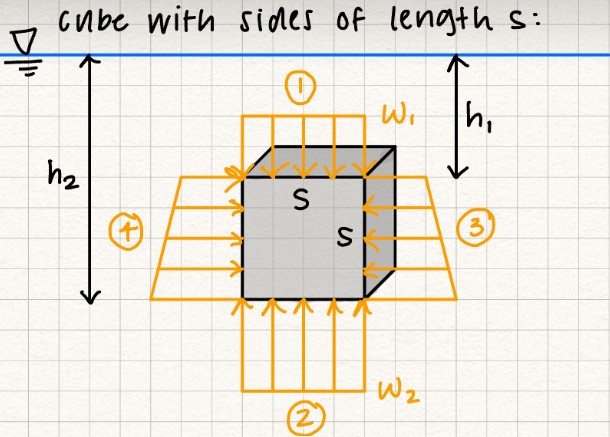 cube with sides of length s:
①
W₁
h₁
h₂
S
S
④
③
W₂
②